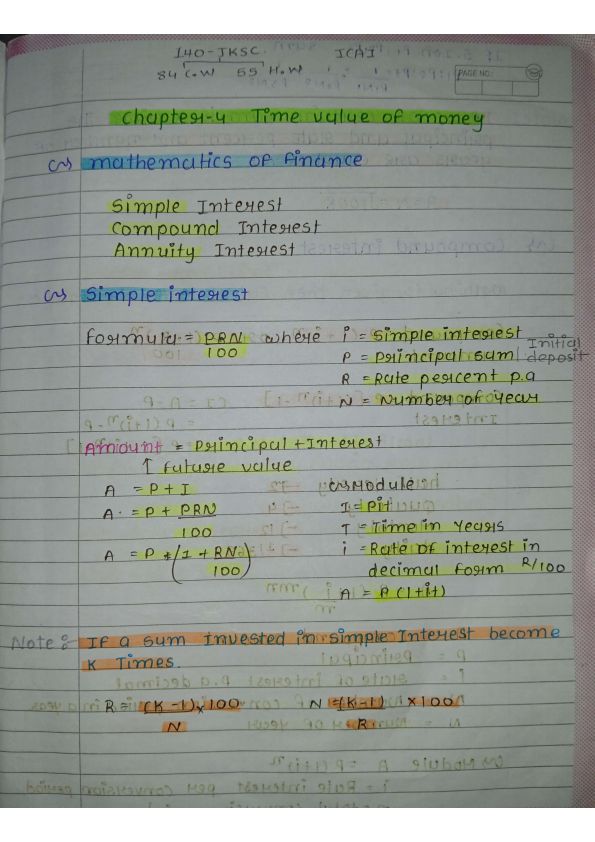 140-JKSC. ICAI
84 C.W 55 H.W
PAGE NO.:
Chapter-4 Time value of money
mathematics of finance
Simple Interest
Compound Interest
Annuity Interest
Simple interest
Formula = PRN where i = Simple interest
100 P = Principal sum / Initial deposit
R = Rate percent p.a
N = Number of year
Amount = Principal + Interest
↑ future value
A = P + I Module
A = P + PRN I = Pit
100 T = Time in years
A = P * (1 + RN) i = Rate of interest in
100 decimal form R/100
A = P (1+it)
Note :- If a sum invested in simple Interest become
K Times.
R = (K-1) x 100 N = (K-1) x 100
N R